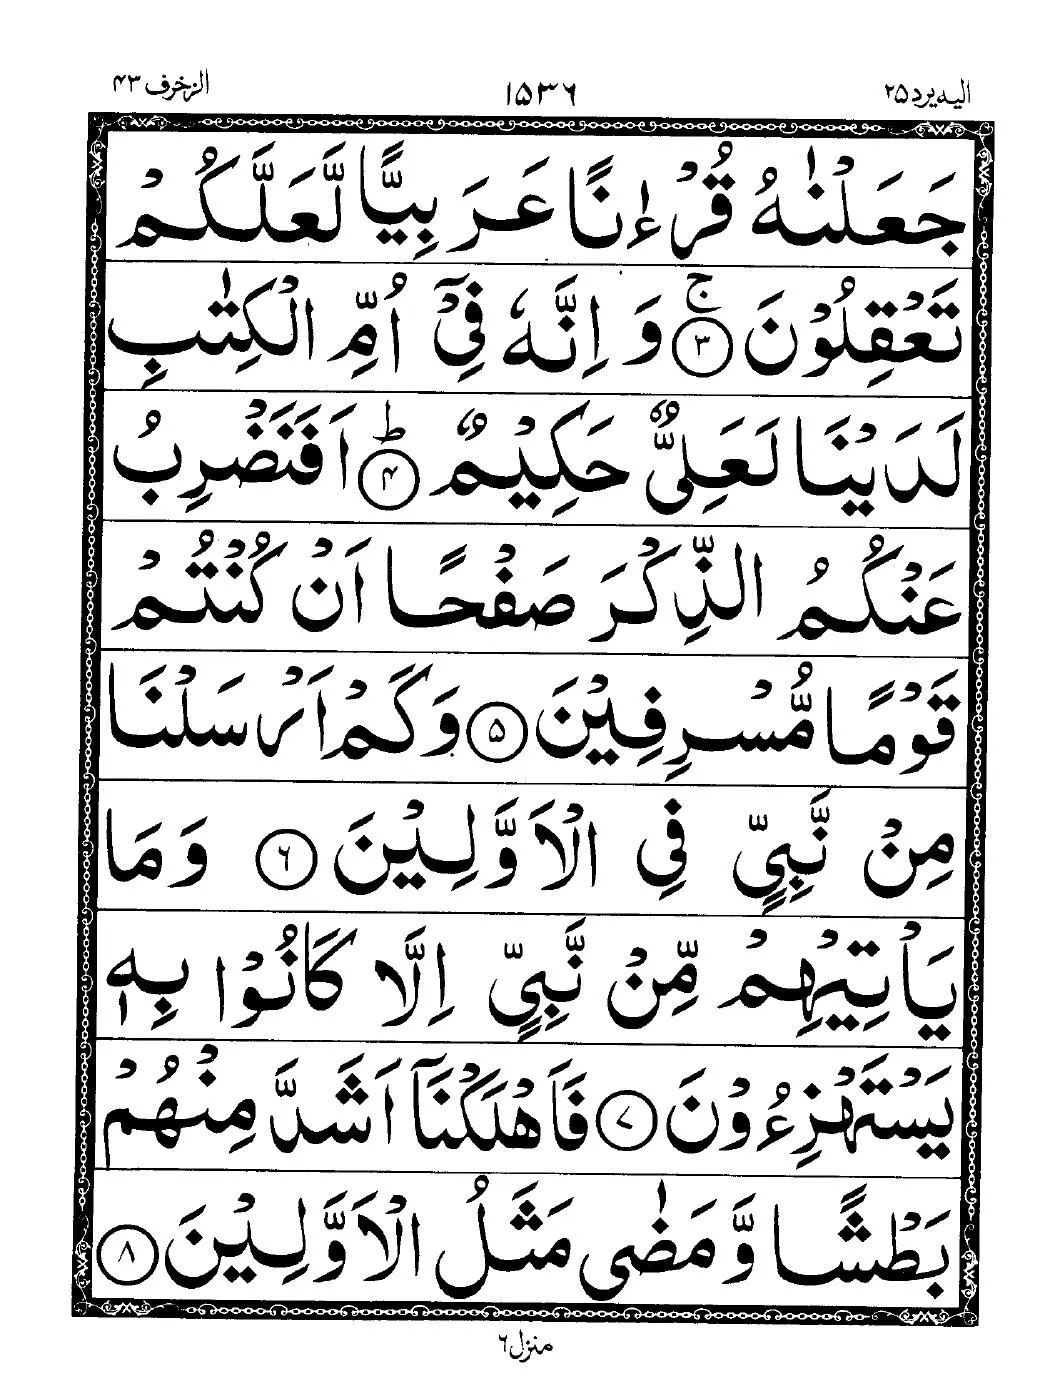 الیه یرد ۲۵ ۱۵۳۶ الزخرف ۴۳
جَعَلْنٰهُ قُرْءٰنًا عَرَبِيًّا لَّعَلَّكُمْ
تَعْقِلُوْنَ ۚ‏ ﴿۳﴾ وَ اِنَّهٗ فِيْۤ اُمِّ الْكِتٰبِ
لَدَيْنَا لَعَلِيٌّ حَكِيْمٌ ؕ‏ ﴿۴﴾ اَفَنَضْرِبُ
عَنْكُمُ الذِّكْرَ صَفْحًا اَنْ كُنْتُمْ
قَوْمًا مُّسْرِفِيْنَ ﴿۵﴾ وَكَمْ اَرْسَلْنَا
مِنْ نَّبِيٍّ فِي الْاَوَّلِيْنَ ﴿۶﴾ وَمَا
يَاْتِيْهِمْ مِّنْ نَّبِيٍّ اِلَّا كَانُوْا بِهٖ
يَسْتَهْزِءُوْنَ ﴿۷﴾ فَاَهْلَكْنَاۤ اَشَدَّ مِنْهُمْ
بَطْشًا وَّ مَضٰى مَثَلُ الْاَوَّلِيْنَ ﴿۸﴾
منزل ۶